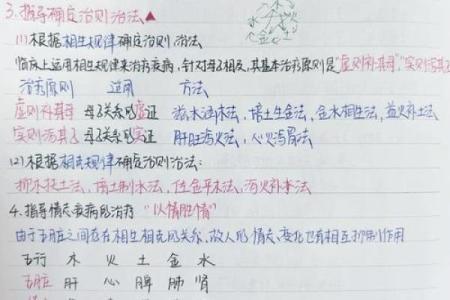 3.指导确定治则治法▲
金 水
(1)根据相生规律确定治则治法
临床上运用相生规律来治疗疾病，针对母子相及，其基本治疗原则是"虚则补其母""实则泻其子
治疗原则 适用 方法
虚则补其母 母子关系的虚证 滋水涵木法，培土生金法，金水相生法，益火补土法
实则泻其子 母子关系的实证 肝旺泻火法，心火泻胃法
(2)根据相克规律确定治则治法：
抑木扶土法，培土制水法，佐金平木法，泻火补水法
4.指导情志疾病的治疗 "以情胜情"
由于五脏之间存在相生相克的关系，故人的情志变化也有相互抑制作用
五行 木 火 土 金 水
五脏 肝 心 脾 肺 肾